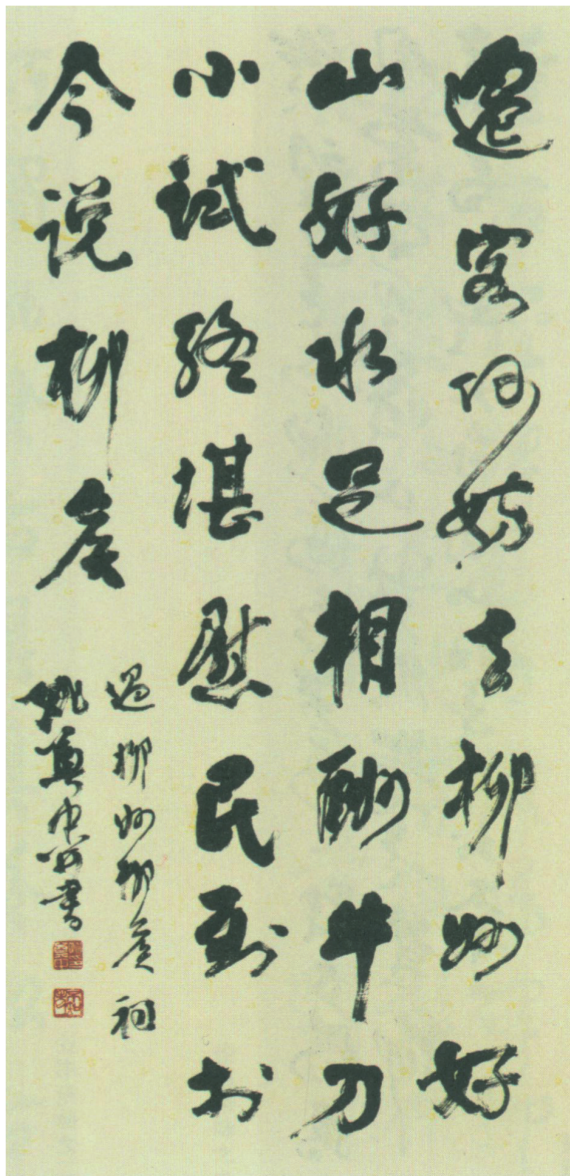 遷客何妨去柳州好
山好水足相酬牛刀
小試終堪慰民到於
今说柳侯
過柳州柳侯祠
姚奠中并書